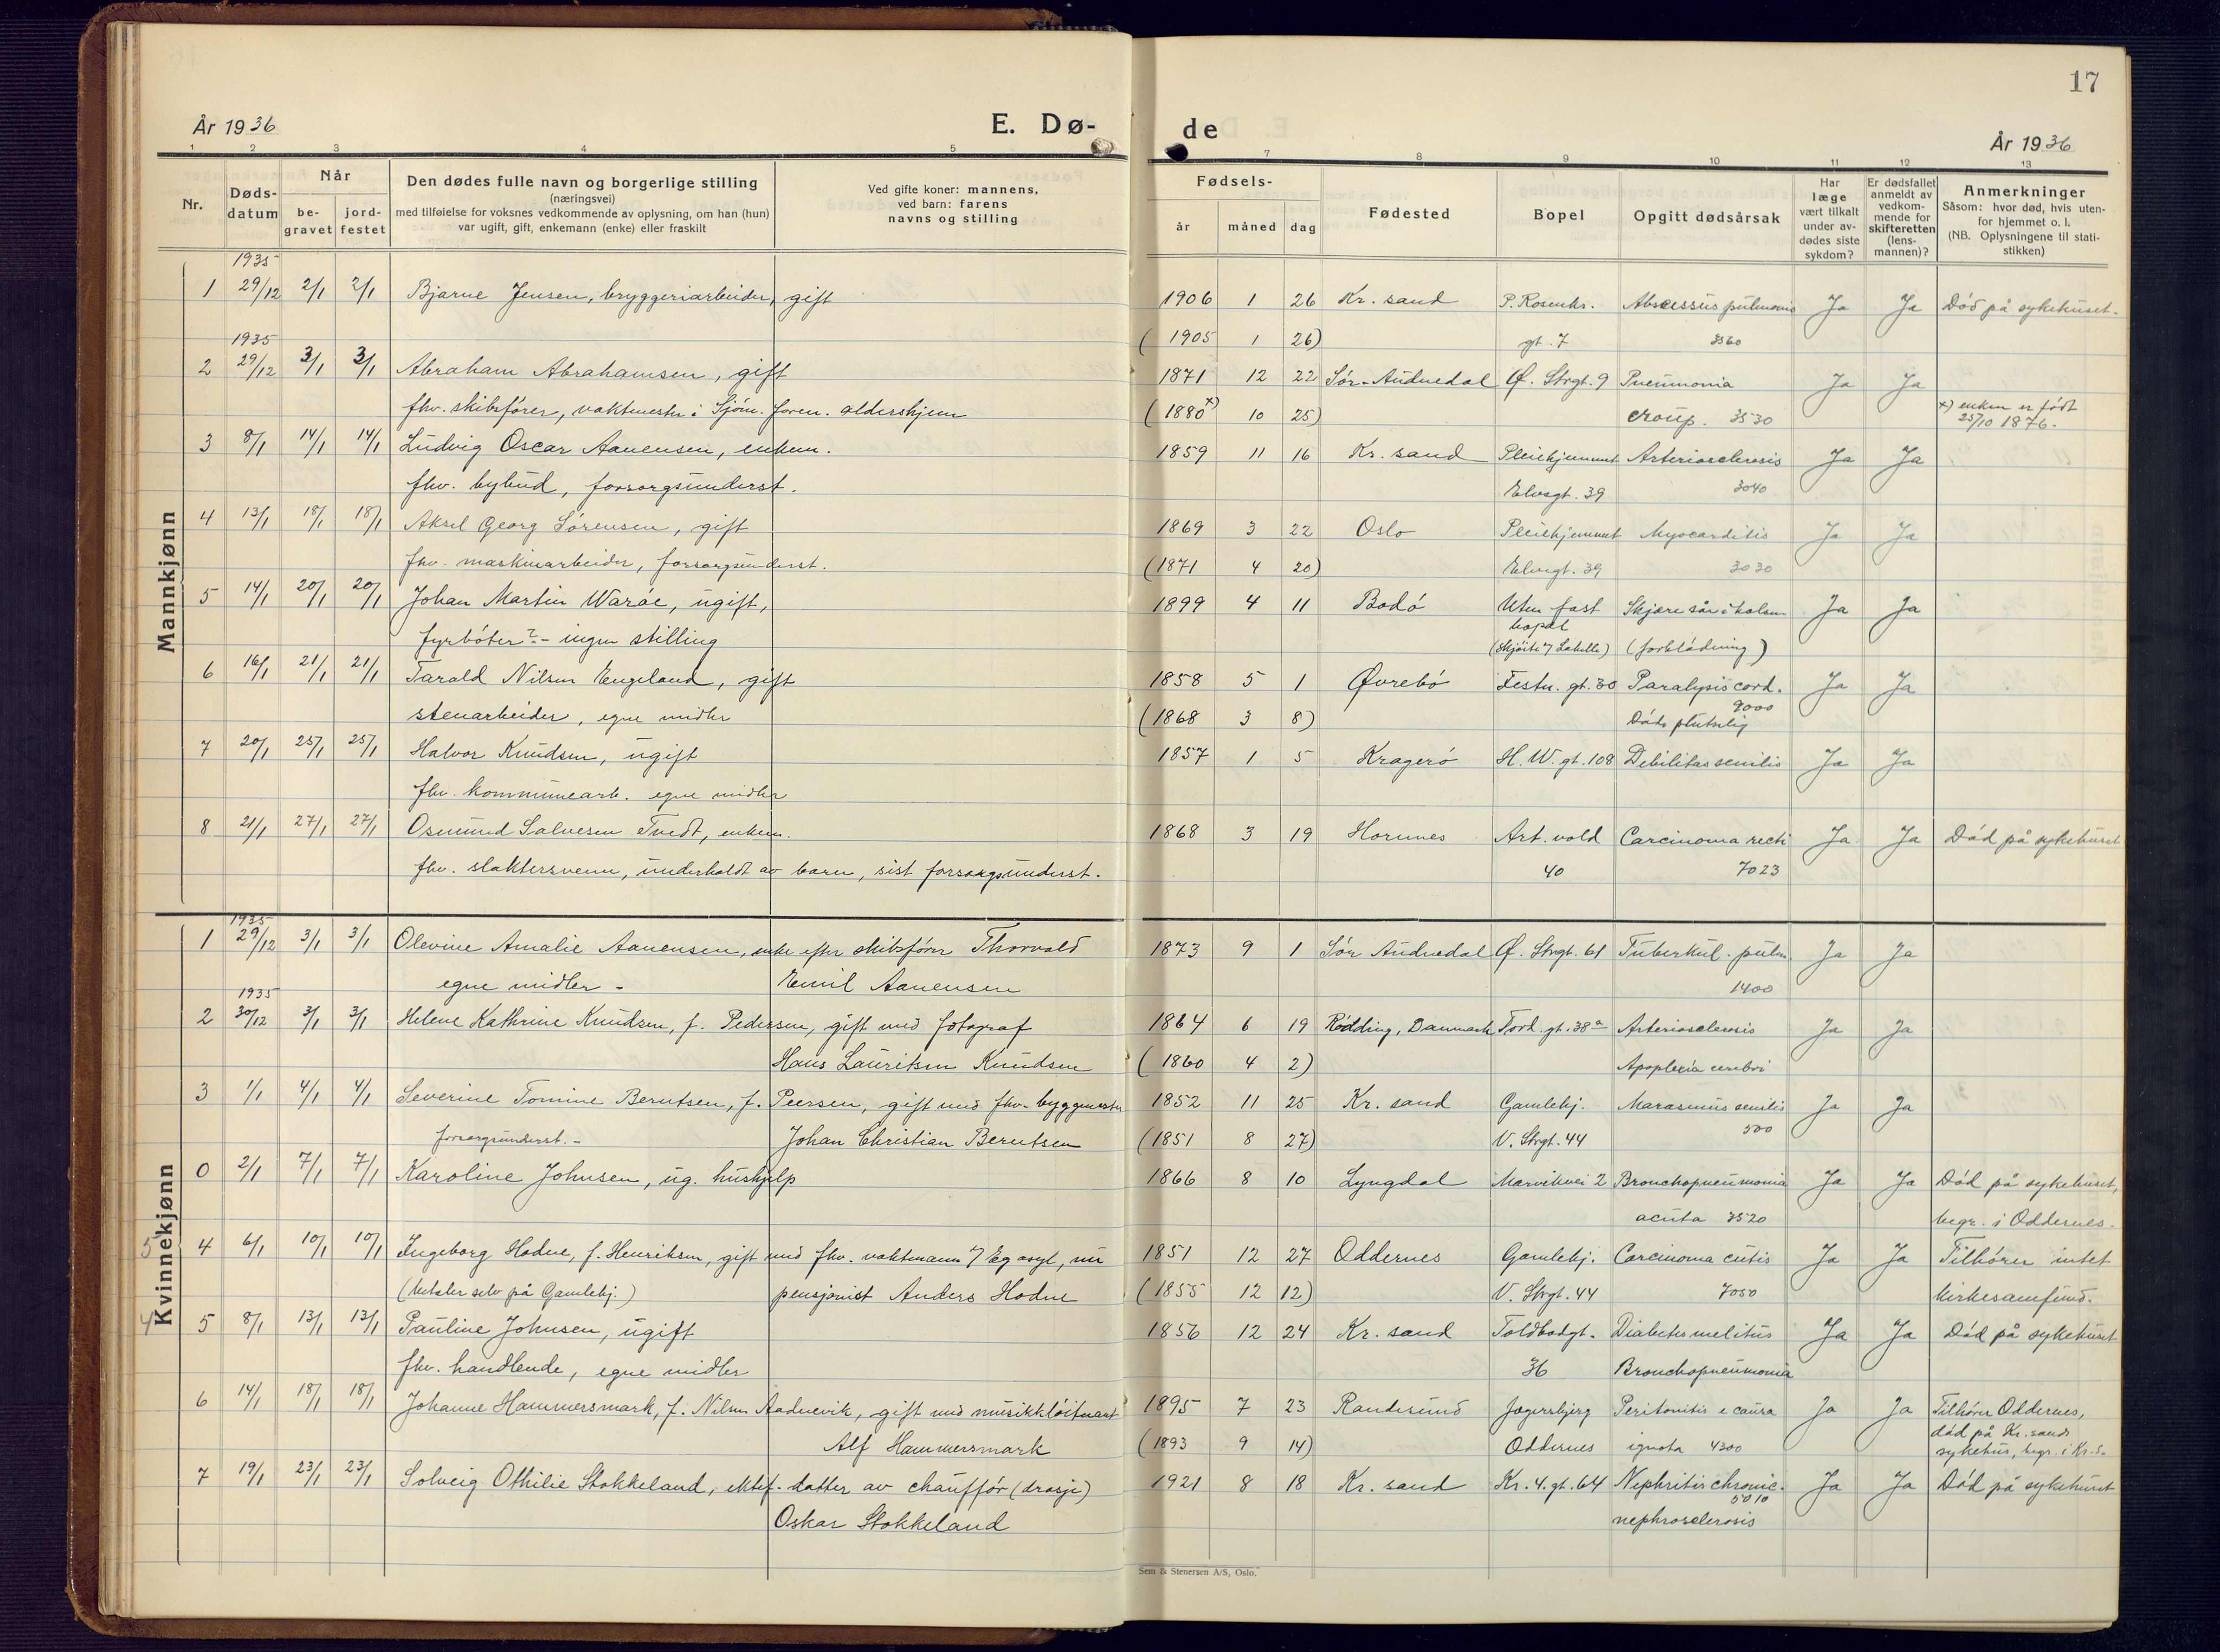 17
År 1936
E. Dø-
de
År 1936
1 2 3 4 5
7 8 9 10 11 12 13
Nr.
Døds-
datum
Når
be-
gravet
jord-
festet
Den dødes fulle navn og borgerlige stilling
(næringsvei)
med tilføielse for voksnes vedkommende av oplysning, om han (hun)
var ugift, gift, enkemann (enke) eller fraskilt
Ved gifte koner: mannens,
ved barn: farens
navns og stilling
Fødsels-
år måned dag
Fødested
Bopel
Opgitt dødsårsak
Har
læge
vært tilkalt
under av-
dødes siste
sykdom?
Er dødsfallet
anmeldt av
vedkom-
mende for
skifteretten
(lens-
mannen)?
Anmerkninger
Såsom: hvor død, hvis uten-
for hjemmet o. l.
(NB. Oplysningene til stati-
stikken)
Mannkjønn
1935
1 29/12 2/1 2/1 Bjarne Jensen, bryggeriarbeider, gift 1906 1 26 Kr. sand P. Rosenkr. Abscessus pulmonis Ja Ja Död på sykehuset.
(1905 1 26) gt. 7 3560
1935
2 29/12 3/1 3/1 Abraham Abrahamsen, gift 1871 12 22 Sör-Audnedal Ø. Strgt. 9 Pneumonia Ja Ja
fhv. skibsförer, vaktmester i Sjöm. foren. aldershjem (1880 x) 10 25) croup. 3530 x) enken er födt
25/10 1876.
3 8/1 14/1 14/1 Ludvig Oscar Aanensen, enkem. 1859 11 16 Kr. sand Pleiehjemmet Arteriosclerosis Ja Ja
fhv. bybud, forsorgsunderst. Elvegt. 39 3040
4 13/1 18/1 18/1 Aksel Georg Sörensen, gift 1869 3 22 Oslo Pleiehjemmet Myocarditis Ja Ja
fhv. maskinarbeider, forsorgsunderst. (1871 4 20) Elvegt. 39 3030
5 14/1 20/1 20/1 Johan Martin Waröe, ugift, 1899 4 11 Bodö Uten fast Skjære sår i halsen Ja Ja
bopel
fyrböter? - ingen stilling (forblödning)
6 16/1 21/1 21/1 Tarald Nilsen Engeland, gift 1858 5 1 Øvrebö Festn. gt. 30 Paralysis cord. Ja Ja
9000
stenarbeider, egne midler (1868 3 8) Döde plutselig
7 20/1 25/1 25/1 Halvor Knudsen, ugift 1857 1 5 Kragerö H. W. gt. 108 Debilitas senilis Ja Ja
fhv. kommunearb. egne midler
8 21/1 27/1 27/1 Osmund Salvesen Tvedt, enkem. 1868 3 19 Hornnes Art. vold Carcinoma recti Ja Ja Död på sykehuset
fhv. slaktersvenn, underholdt av barn, sist forsorgsunderst. 40 7023
Kvinnekjønn
1935
1 29/12 3/1 3/1 Olevine Amalie Aanensen, enke efter skibsförer Thorvald 1873 9 1 Sör Audnedal Ø. Strgt. 61 Tuberkul. pulm. Ja Ja
egne midler - Emil Aanensen 1400
1935
2 30/12 3/1 3/1 Helene Kathrine Knudsen, f. Pedersen, gift med fotograf 1864 6 19 Rödding, Danmark Tord. gt. 38a Arteriosclerosis Ja Ja
Hans Lauritsen Knudsen (1860 4 2) Apoplexia cerebri
3 1/1 4/1 4/1 Severine Tomine Berntsen, f. Peersen, gift med fhv. byggmester 1852 11 25 Kr. sand Gamlehj. Marasmus senilis Ja Ja
500
forsorgsunderst. - Johan Christian Berntsen (1851 8 27) V. Strgt. 44
0 2/1 7/1 7/1 Karoline Johnsen, ug. hushjelp 1866 8 10 Lyngdal Marvikvei 2 Bronchopneumonia Ja Ja Död på sykehuset,
acuta 3520 begr. i Oddernes.
5 4 6/1 10/1 10/1 Ingeborg Hodne, f. Henriksen, gift med fhv. vaktmann v/ Eg asyl, nu 1851 12 27 Oddernes Gamlehj. Carcinoma cutis Ja Ja Tilhörer intet
(betaler selv på Gamlehj.) pensjonist Anders Hodne (1855 12 12) V. Strgt. 44 7050 kirkesamfund.
4 5 8/1 13/1 13/1 Pauline Johnsen, ugift 1856 12 24 Kr. sand Toldbodgt. Diabetes melitus Ja Ja Död på sykehuset
fhv. handlende, egne midler 36 Bronchopneumonia
6 14/1 18/1 18/1 Johanne Hammersmark, f. Nilsen Aadnevik, gift med musikklöitnant 1895 7 23 Randesund Jegersbjerg Peritonitis e causa Ja Ja Tilhörer Oddernes,
död på Kr. sands
Alf Hammersmark (1893 9 14) Oddernes ignota 4300 sykehus, begr. i Kr. s.
7 19/1 23/1 23/1 Solveig Othilie Stokkeland, ektef. datter av chaufför (drosje) 1921 8 18 Kr. sand Kr. 4. gt. 64 Nephritis chronic. Ja Ja Död på sykehuset
5010
Oskar Stokkeland nephrosclerosis
Sem & Stenersen A/S, Oslo.